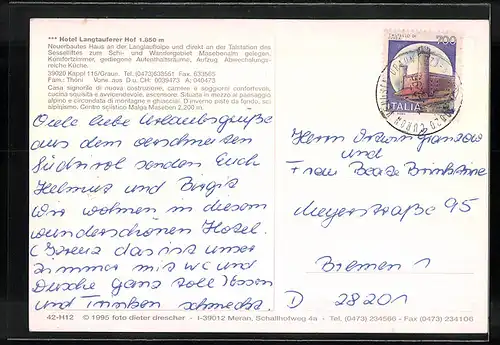 *** Hotel Langtauferer Hof 1.860 m
Neuerbautes Haus an der Langlaufloipe und direkt an der Talstation des
Sesselliftes zum Schi- und Wandergebiet Maseben gelegen,
Komfortzimmer, gediegene Aufenthaltsräume, Aufzug. Abwechslungs-
reiche Küche.
39020 Kappl 115/Graun. Tel. (0473)633551 Fax. 633565
Fam.: Thöni
Casa signorile di nuova costruzione, camere e soggiorni confortevoli,
cucina squisita e avvicendevole, ascensore. Situata in mezzo al paesaggio
alpino e circondata di montagne e ghiacciai. D'inverno piste da fondo, sci
alpinismo. Centro sciistico Malga Maseben 2.200 m.
Viele liebe Urlaubsgrüße
aus dem verschneiten
Südtirol senden Euch
Helmut und Birgit
Wir wohnen in diesem
wunderschönen Hotel.
das ist unser
Zimmer mit WC und
Dusche ganz toll Essen
und Trinken schmeckt.
700
ITALIA
Herrn
und
Frau Beate
Meyerstraße 95
Bremen 1
D 28201
42-H12 © 1995 foto dieter drescher - I-39012 Meran, Schallhofweg 4a - Tel. (0473) 234566 - Fax (0473) 234106